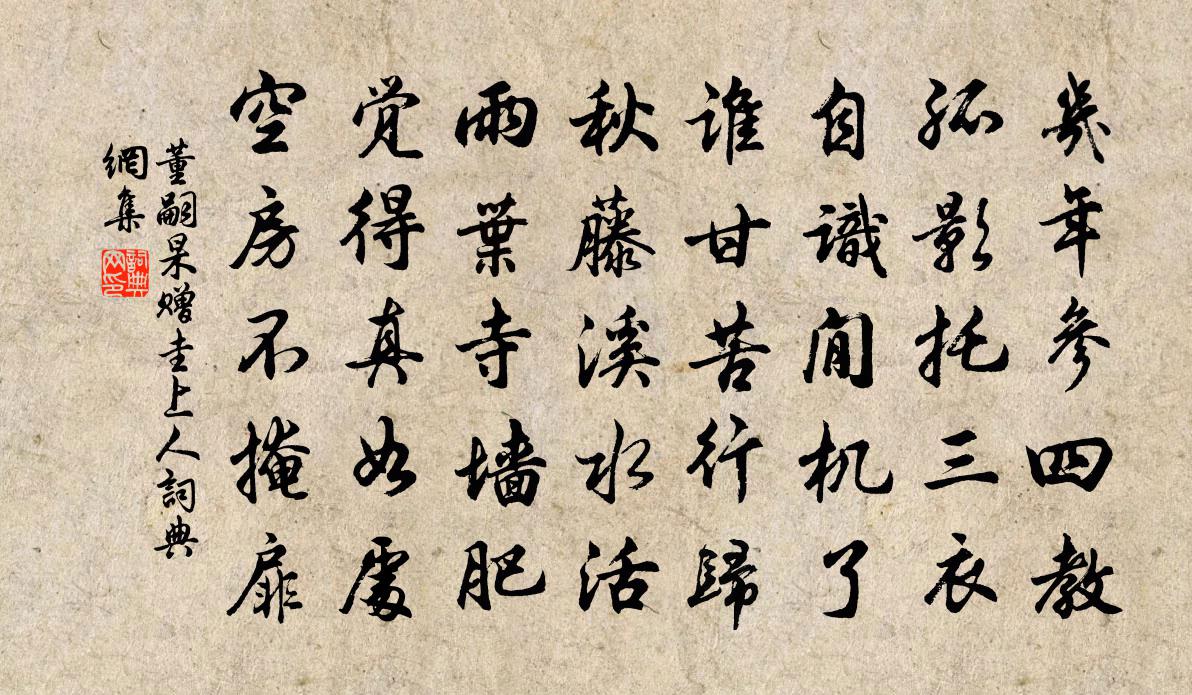 幾年參四教
孤影托三衣
自識閒机了
誰甘苦行歸
秋藤溪水活
雨葉寺墙肥
觉得真如處
空房不掩扉
董嗣杲赠圭上人詞典
網集
詞典
网印